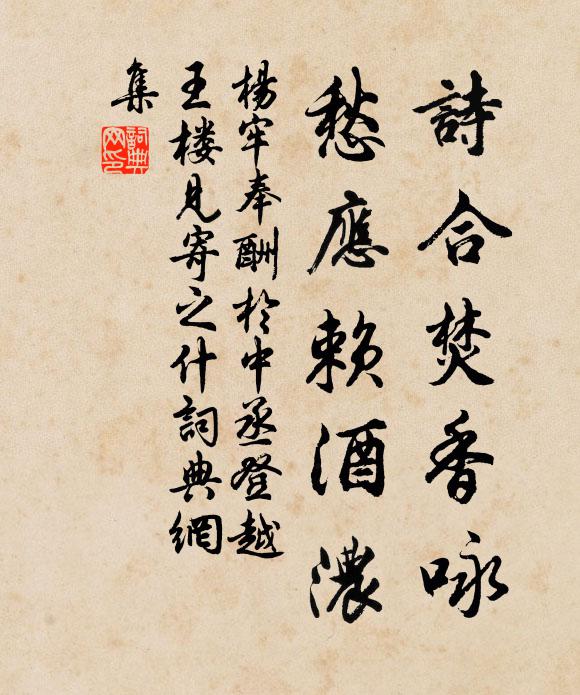 詩合焚香咏
愁應賴酒濃
楊牢奉酬於中丞登越
王楼見寄之什詞典網
集
詞典网印